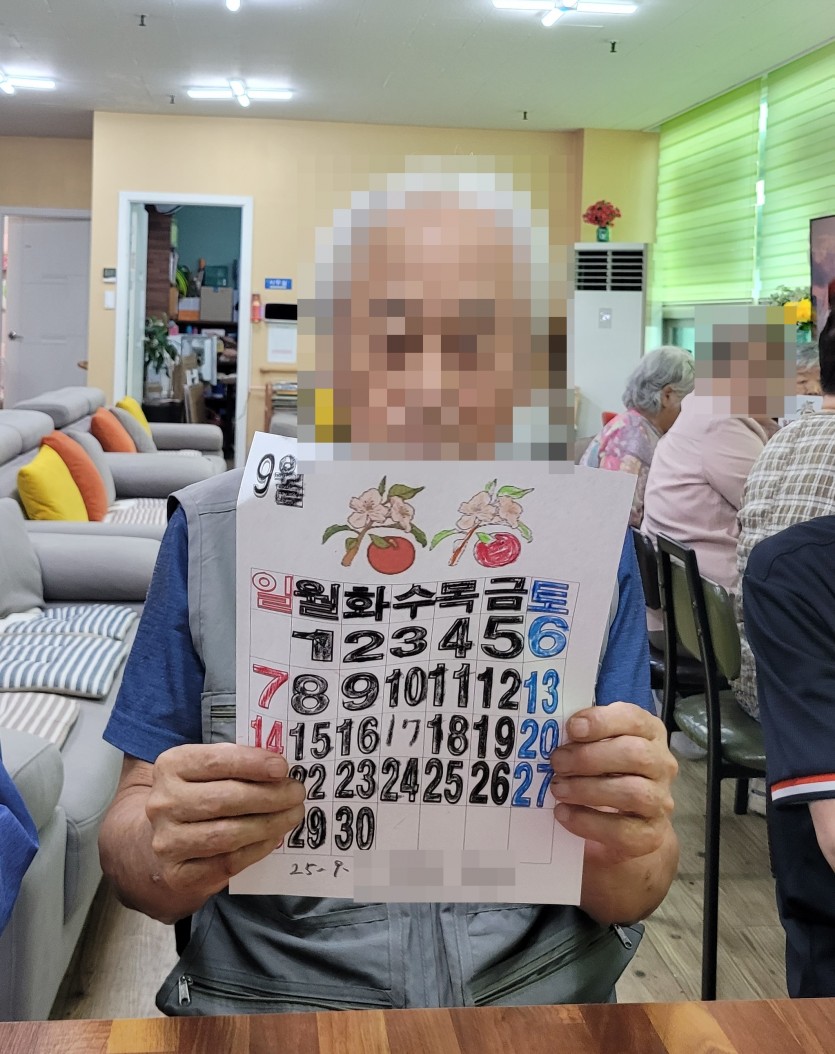 9월
일 월 화 수 목 금 토
1 2 3 4 5 6
7 8 9 10 11 12 13
14 15 16 17 18 19 20
22 23 24 25 26 27
29 30
25. 9.